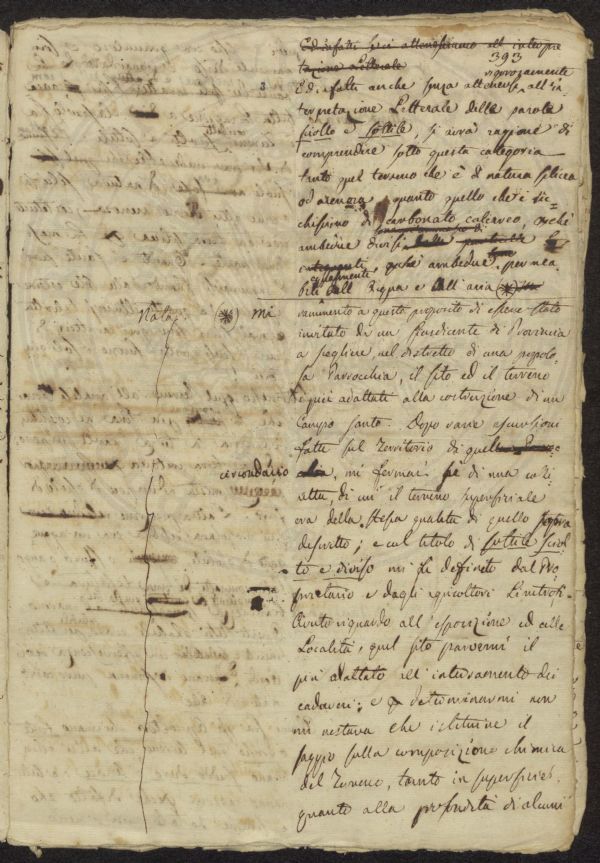 Ed infatti se ci attenessimo all' interpre
tazione letterale
393
Ed i fatti anche senza attenersi all'in
vigorosamente
terpretazione Letterale delle parole
sciolto e sottile, si avrà ragione di
comprendere sotto questa categoria
tanto quel terreno che è di natura silicea
od arenosa, quanto quello che è ric=
chissimo di carbonato calcareo, perchè
ambedue divisi
ugualmente perchè ambedue permea
bili dall' acqua e dall' aria
Nota
mi
rammento a questo proposito di essere stato
invitato da un Presidente di Provincia
a scegliere nel distretto di una popolo
sa Parrocchia, il sito ed il terreno
i più adattati alla costruzione di un
Campo santo. Doppo varie escursioni
fatte sul Territorio di quella
circondario
mi fermai di una coli
netta, di cui il terreno superficiale
era della stessa qualità di quello sopra
descritto; e col titolo di sottile sciol
to e diviso mi fu definito dal Pro
prietario e dagli agricoltori limitrofi.
riguardo all' esposizione ed alle
Località, quel sito parvemi il
più adattato all' interramento dei
cadaveri; e a determinarmi non
mi restava che istituire il
saggio sulla composizione chimica
del Terreno, tanto in superficie,
quanto alla profondità di alcuni